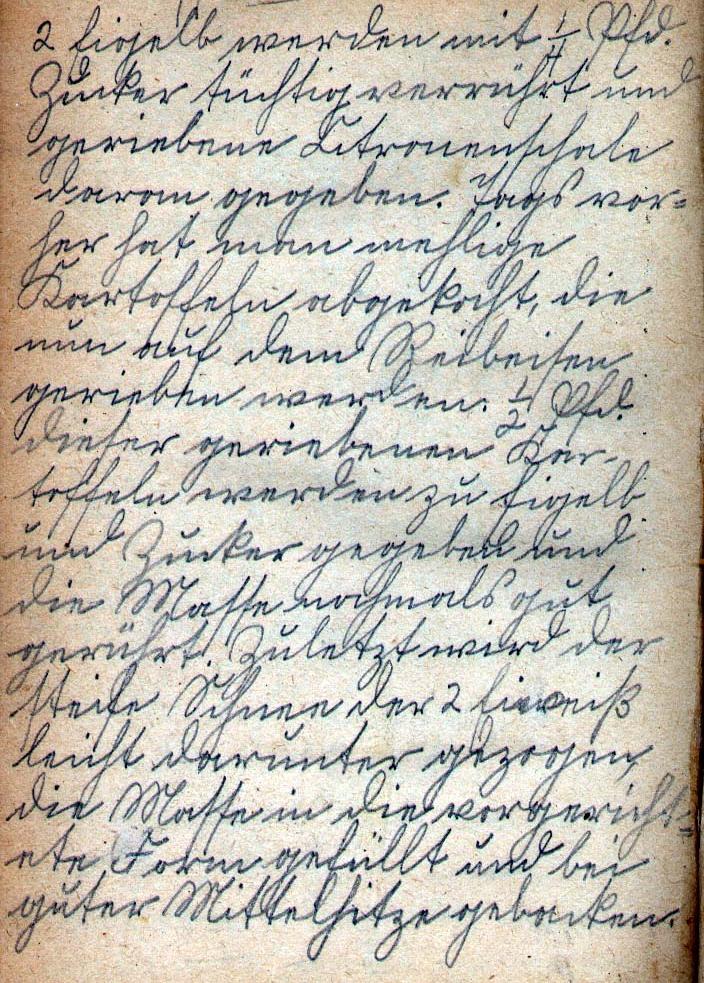 2 Eigelb werden mit 1/4 Pfd.
Zucker tüchtig verrührt und
geriebene Citronenschale
daran gegeben. Tags vor=
her hat man mehlige
Kartoffeln abgekocht, die
nun auf dem Reibeisen
gerieben werden. 1/2 Pfd.
dieser geriebenen Kar-
toffeln werden zu Eigelb
und Zucker gegeben und
die Masse nochmals gut
gerührt. Zuletzt wird der
steife Schnee der 2 Eiweiß
leicht darunter gezogen,
die Masse in die vorgericht=
ete Form gefüllt und bei
guter Mittelhitze gebacken.